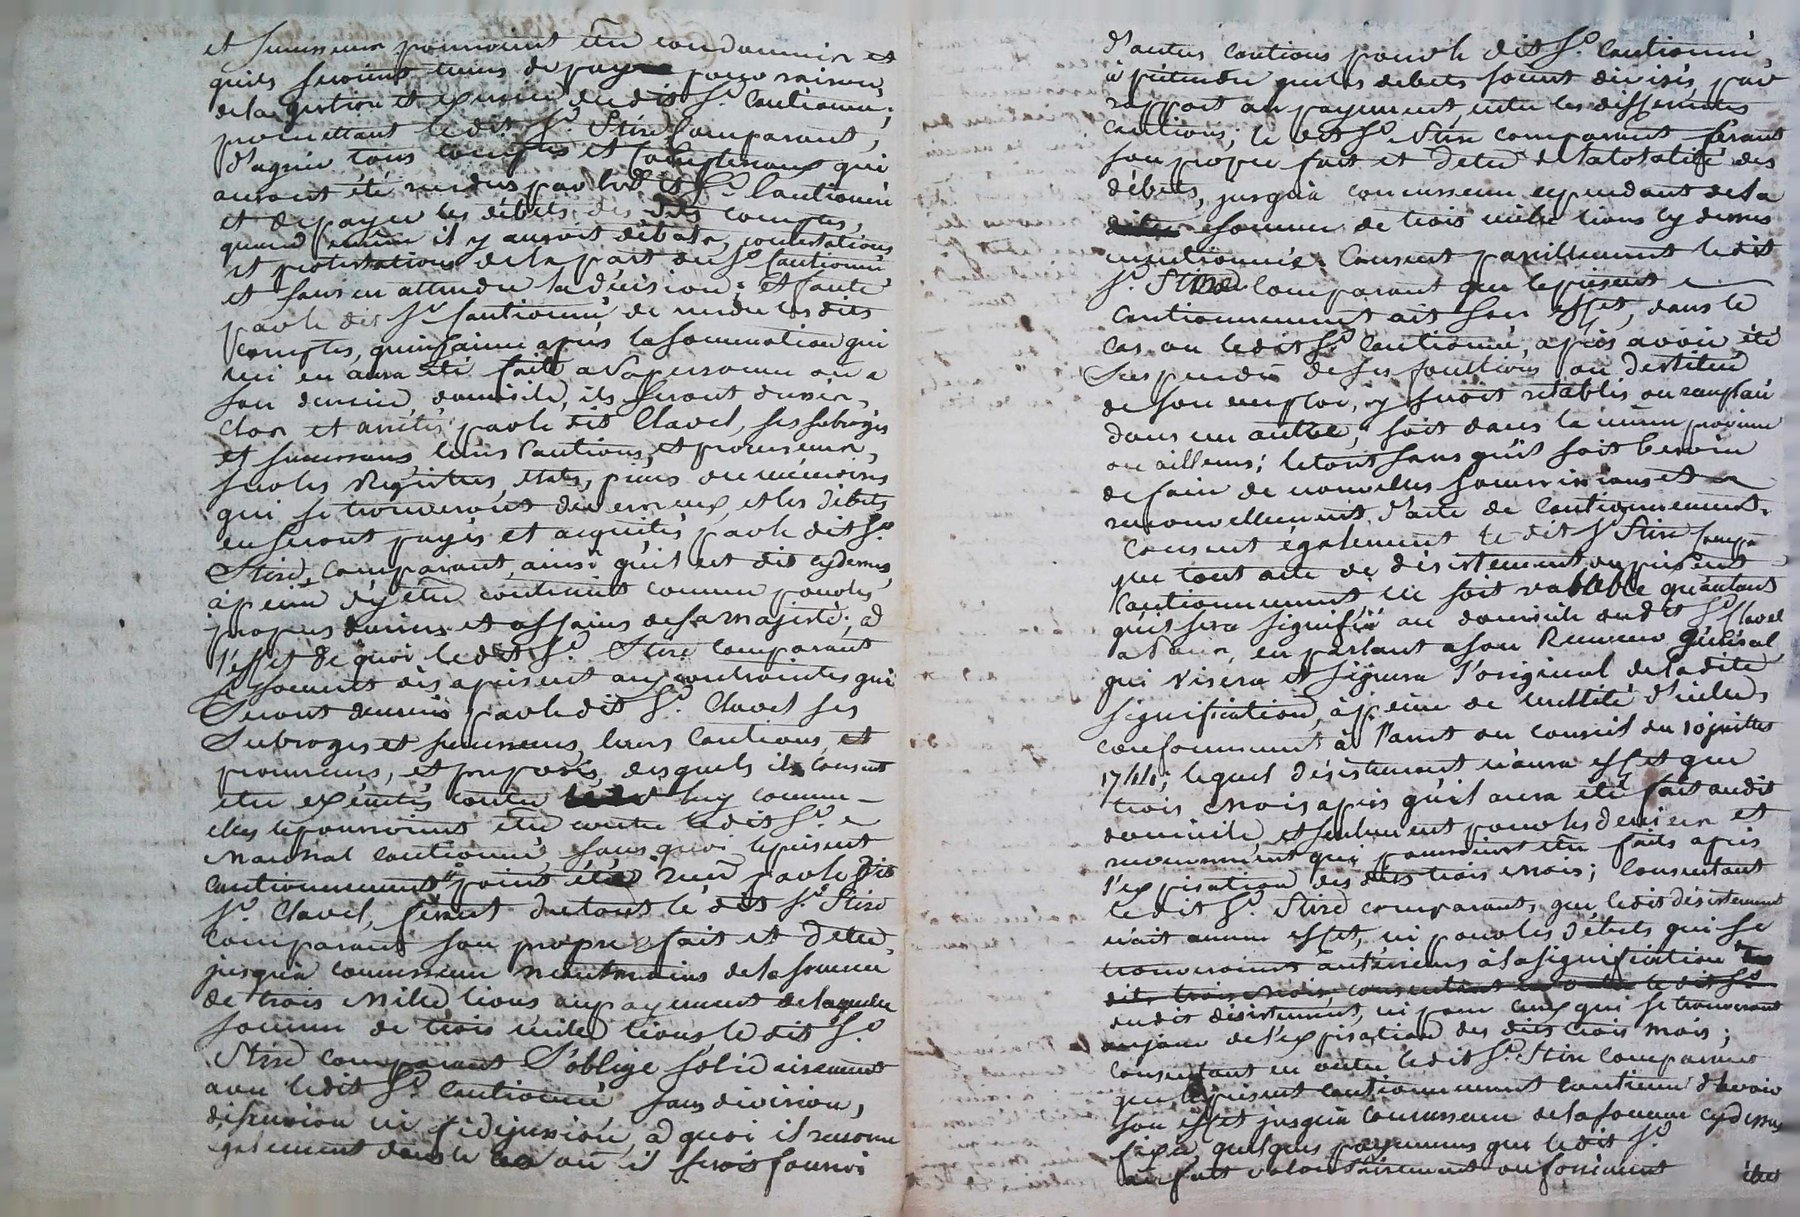 et successeurs pourroient être condamnés et
qu'ils seroient tenus de payer pour raison
de la gestion et exercice du dit Sr. Cautionné;
promettant le dit Sr. Stire Comparant,
d'agréer tous comptes et qui
auront été rendus par le dit Sr. Cautionné
et de payer les débets des dits comptes,
quand même il y auroit débats, contestations
et protestations de la part du Sr. Cautionné
et sans en attendre la décision; Et faute
par le dit Sr. Cautionné de rendre les dits
comptes, quinzaine après la sommation qui
lui en aura été faite a sa personne ou a
son dernier domicile, ils seront dressés,
clos et arrêtés par le dit Clavel, ses subrogés
et successeurs leurs Cautions, et procureurs,
sur les Registres, états, pièces ou mémoires
qui se trouveront du exercice, et les débets
en seront payés et acquités par le dit Sr.
Stire, Comparant, ainsi qu'il est dit cydessus,
à peine d'y être contraint comme pour les
propres deniers et affaires de sa majesté; a
l'effet de quoi le dit Sr. Stire comparant
se soumet dès aprésent aux contraintes qui
seront décernées par le dit Sr. Clavel ses
Subrogés et successeurs, leurs Cautions, et
procureurs, et préposés, desquels il consent
être exécutés contre luy comme
elles le pourroient être contre le dit Sr.
Maréchal cautionné, sans quoi le présent
cautionnement n'eut point été reçu par le dit
Sr. Clavel, faisant du tout le dit Sr. Stire
comparant son propre fait et dette,
jusqu'à concurrence néantmoins de la somme
de trois mille livres au payement de laquelle
somme de trois mille livres, le dit Sr.
Stire comparant S'oblige solidairement
avec le dit Sr. Cautionné sans division,
discussion ni fidejussion, a quoi il renonce
également dans le cas où il seroit fourni
d'autres cautions pour le dit Sr. Cautionné
à prétendre que les débets soient divisés, par
rapport au payement, entre les différentes
cautions; le dit Sr. Stire comparant faisant
son propre fait et dette de la totalité des
débets, jusqu'à concurrence cependant de la
somme de trois mille livres cy dessus
mentionnée. Consent pareillement le dit
Sr. Stire Comparant que le présent
Cautionnement ait son effet, dans le
cas ou le dit Sr. Cautionné, après avoir été
suspendu de ses fonctions ou destitué
de son emploi, y seroit rétabli ou remplacé
dans un autre, soit dans la même province
ou ailleurs; le tout sans qu'il soit besoin
de faire de nouvelles soumissions et
renouvellement d'acte de Cautionnement.
Consent également le dit Sr. Stire Compt
que tout acte de désistement du présent
Cautionnement ne soit valable qu'autant
qu'il sera signifié au domicile du dit Sr. Clavel
a Paris, en parlant a son Receveur général,
qui visera et signera l'original de la dite
signification, à peine de nullité d'icelle,
conformément à l'arrêt du conseil du 10 juillet
1744; lequel désistement n'aura effet que
trois mois après qu'il aura été fait au dit
domicile, et seulement pour les deniers et
recouvrement qui pourroient être faits après
l'expiration des dits trois mois; Consentant
le dit Sr. Stire comparant, que le dit désistement
n'ait aucun effet, ni pour les débets qui se
trouveroient antérieurs à la signification
dits trois mois, consentant le dit Sr.
du dit désistement, ni pour ceux qui se trouveront
au jour de l'expiration des dits trois mois;
Consentant en outre le dit Sr. Stire Comparant
que le présent cautionnement continue d'avoir
son effet jusqu'à concurrence de la somme cydessus
fixée, quelques payemens que le dit Sr.
ait faits volontairement ou forcément